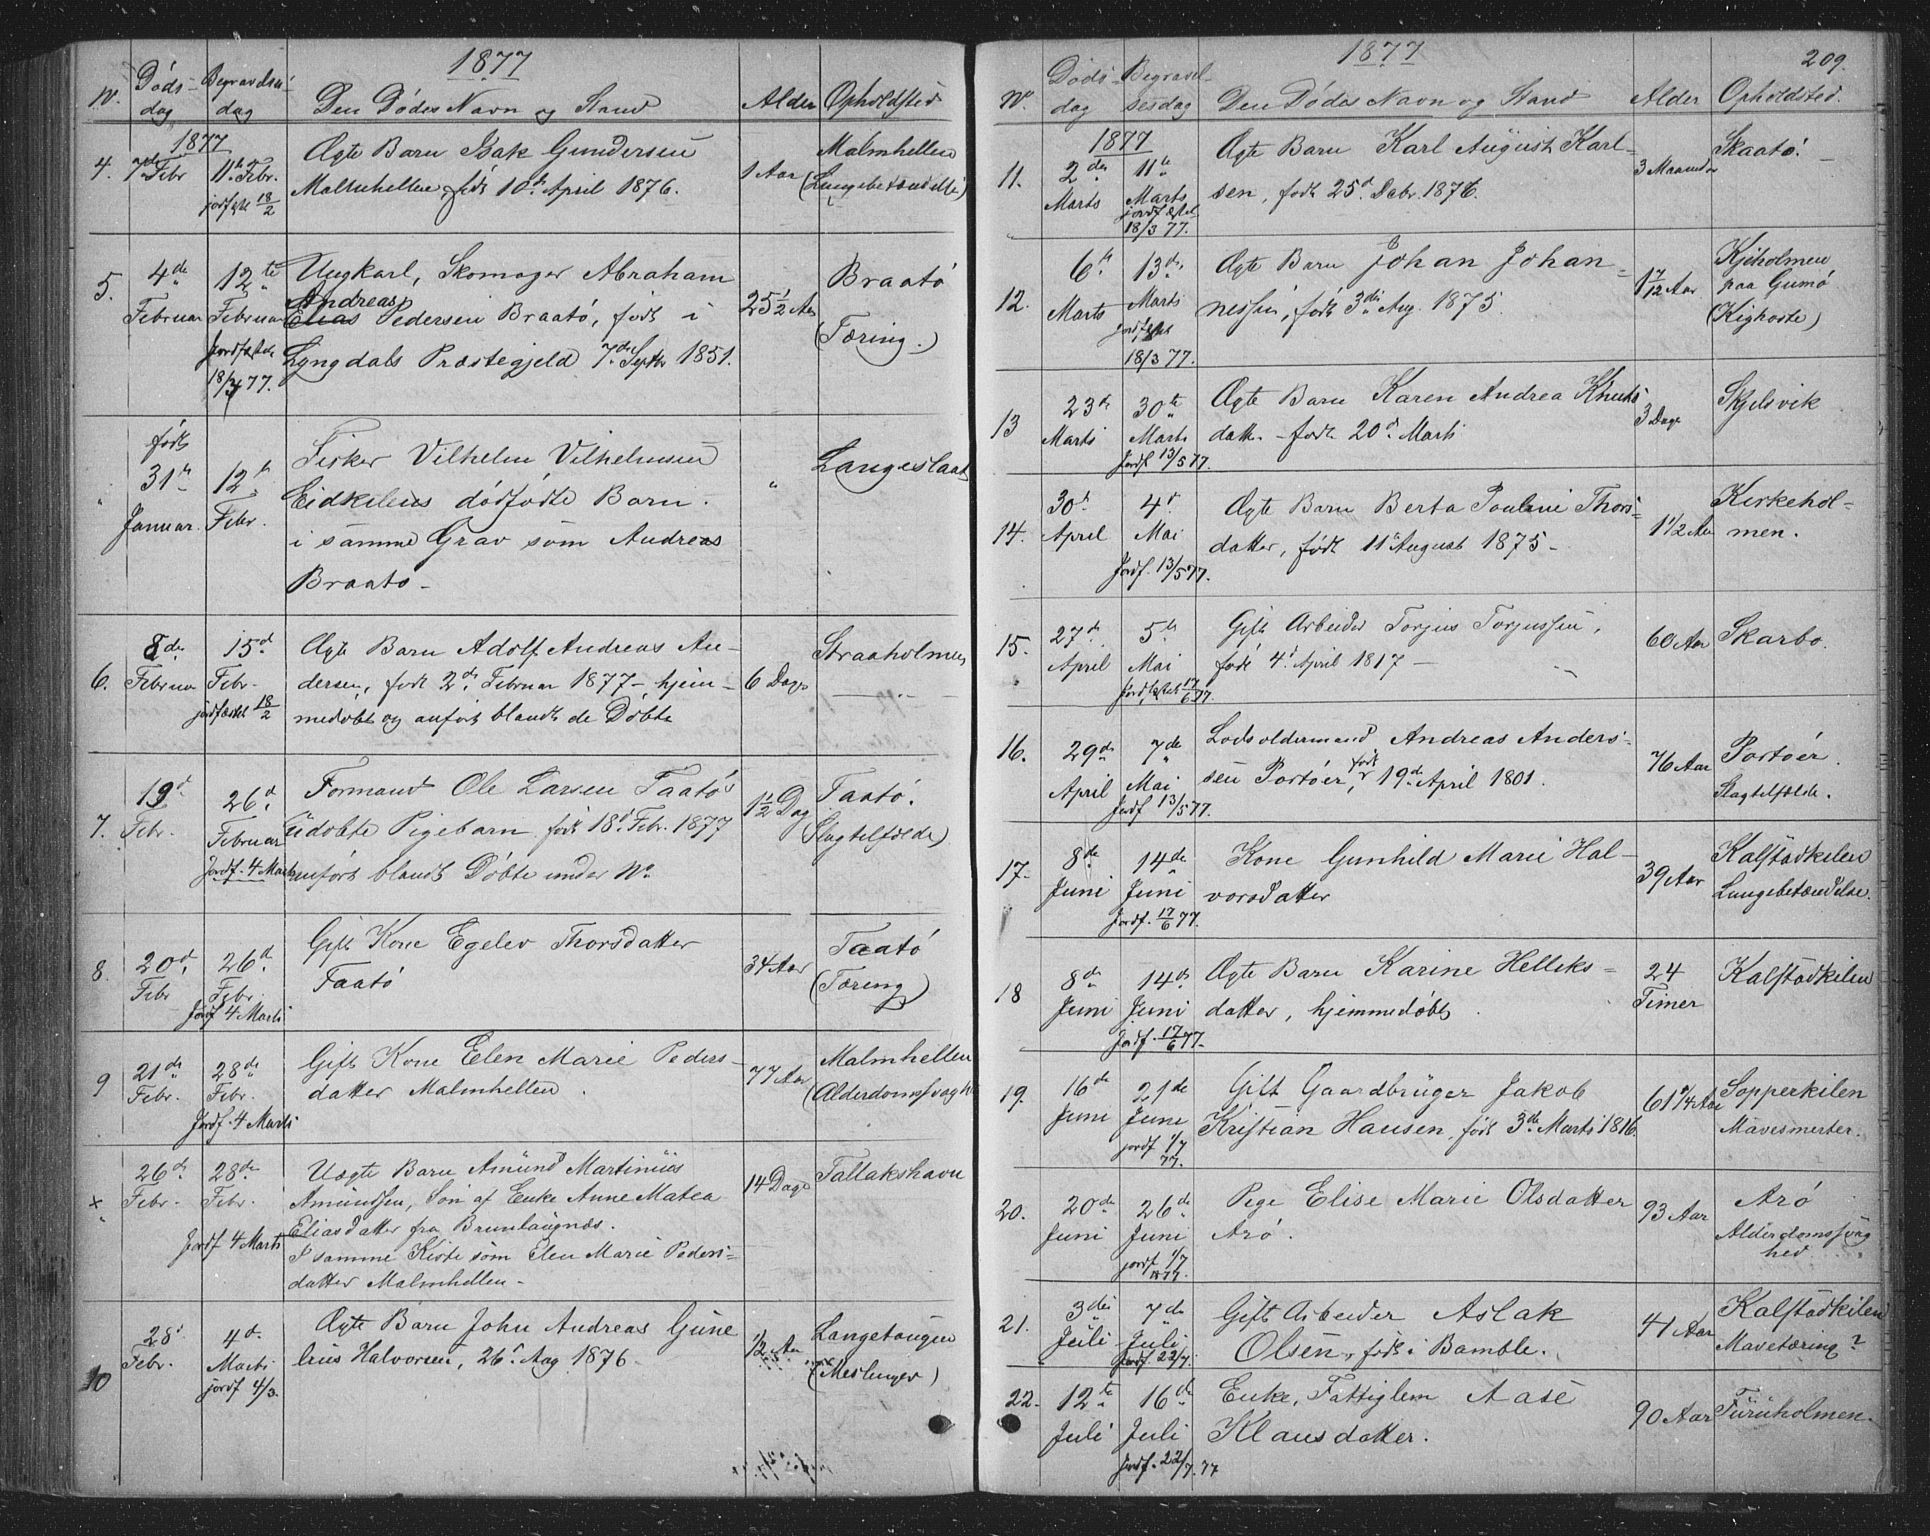 1877
N. Døds- Begravelses-
dag dag Den Dødes Navn og Stand Alder Opholdsted
1877
4. 7de Febr 11te Febr. Ægte Barn Isak Gundersen 1 Aar Malmhellen
jordfæstet 18/2 Malmhellen, født 10de April 1876. (Lungebetændelse)
5. 4de 12te Ungkarl, Skomager Abraham 25 1/2 Aar Braatø
Andreas
Februar Februar Elias Pedersen Braatø, født i (Tæring.)
Jordfæstede Lyngdals Præstegjeld 7de Septbr 1851.
18/3 77.
født
" 31te 12te Fisker Vilhelm Vilhelmsen " Langeslaat
Januar. Febr. Eidkilens dødfødte Barn.
i samme Grav som Andreas
Braatø -
6. 8de 15de Ægte Barn Adolf Andreas An- 6 Dage Straaholmen
Februar Febr. dersen, født 2den Februar 1877 - hjem-
jordfæstet 18/2 medøbt og anført blandt de Døbte
7. 19de 26de Formand Ole Larsen Taatø's 1 1/2 Dag Taatø.
Febr. Februar udøbte Pigebarn født 18d Febr. 1877 (Slagtilfælde)
Jordf. 4 Marts anført blandt Døbte under No
8. 20de 26de Gift Kone Egelev Thorsdatter 34 Aar Taatø
Febr Febr. Taatø (Tæring)
Jordf 4 Marts
9 21de 28de Gift Kone Elen Marie Peders- 77 Aar Malmhellen
Febr. Febr. datter Malmhellen. (Alderdomssvaghed
Jordf. 4 Marts
x 26de 28de Uægte Barn Amund Martinius 14 Dage Tallakshavn
" Febr. Febr. Amundsen, Søn af Enke Anne Matea
Jordf 4 Marts Eliasdatter fra Brunlaugnæs.
I samme Kiste som Elen Marie Peders-
datter Malmhellen -
10 28de 4de Ægte Barn John Andreas Gune 1/2 Aar Langetangen
Febr. Marts lius Halvorsen, 26de Aug 1876. (Meslinger)
jordf 4/3.
1877 209.
N. Døds- Begravel-
dag sesdag Den Dødes Navn og Stand Alder Opholdsted.
1877
11. 2den 11te Ægte Barn Karl August Karl- 3 Maaneder Skaatø.
Marts Marts sen, født 25de Debr. 1876.
jordfæstet
18/3 77.
12. 6te 13de Ægte Barn Johan Johan- 1 7/12 Aar Kjeholmen
Marts Marts nessen, født 3die Aug. 1875. paa Gumø
Jordfæstet (Kighoste)
18/3 77.
13 23de 30te Ægte Barn Karen Andrea Knuts 3 Dage Skjelsvik
Marts Marts datter - født 20de Marts
Jordf. 13/5 77.
14. 30te 4de Ægte Barn Berta Pouline Thors- 1 1/2 Aar Kirkehol-
April Mai datter, født 11te August 1875 - men.
Jordf. 13/5 77.
15. 27de 5te Gift Arbeider Torjus Torjussen, 60 Aar Skarbo.
April Mai født 4de April 1817 -
Jordfæstet 17/6 77.
16. 29de 7de Lodsoldermand Andreas Anders- 76 Aar Portøer.
April Mai sen Portøer, født 19de April 1801. Slagtilfælde.
Jordf 13/5 77.
17. 8de 14de Kone Gunhild Marie Hal- 39 Aar Kalstadkilen
Juni Juni vorsdatter Lungebetændelse.
Jordf. 17/6 77.
18 8de 14de Ægte Barn Karine Helleks- 24 Kalstadkilen
Juni Juni datter, hjemmedøbt Timer
Jordf. 17/6 77.
19. 16de 21de Gift Gaardbruger Jakob 61 1/4 Aar Sopperkilen
Juni Juni Kristian Hansen, født 3de Marts 1816. Mavesmerter.
jordf 1/7
77.
20. 20de 26de Pige Elise Marie Olsdatter 93 Aar Arø
Juni Juni Arø. Alderdomssvag
jordf 1/7 hed
1877.
21. 3die 7de Gift Arbeider Aslak 41 Aar Kalstadkilen
Juli Juli Olsen, født i Bamble. Mavetæring?
Jordf. 22/7.
22. 12te 16de Enke, Fattiglem Aase 90 Aar Furuholmen.
Juli Juli Klausdatter.
Jordf. 22/7. 77